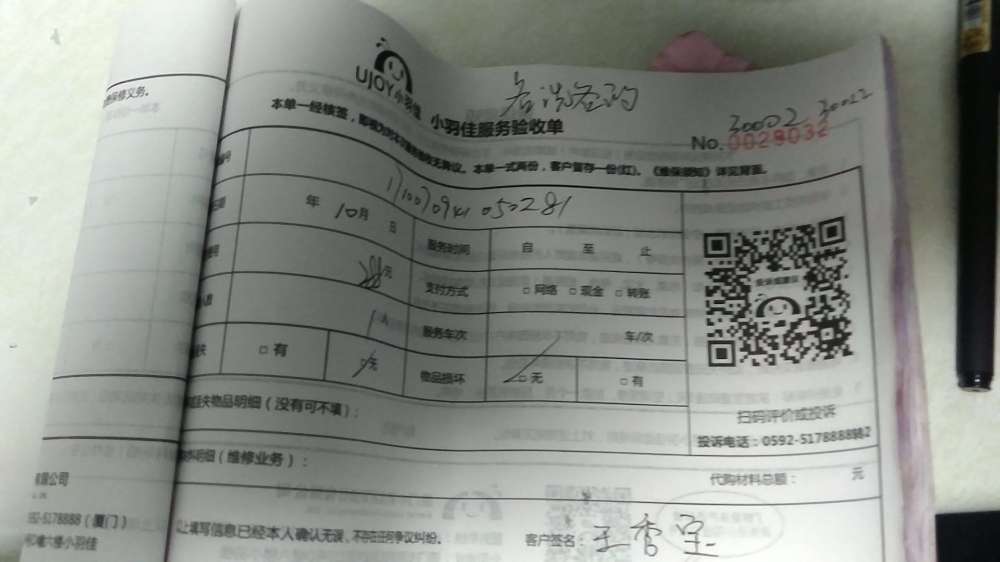 保修义务。
UJOY小羽佳
小羽佳服务验收单
30002 30022
No.0029032
本单一式两份，客户留存一份(红)。《维保须知》详见背面。
年 10月 日
服务时间 自 至 止
28元
支付方式 □网络 □现金 □转账
1人
服务车次 车/次
□有 □无
物品损坏 □无 □有
扫码评价或投诉
投诉电话：0592-5178888转2
失物品明细（没有可不填）：
明细（维修业务）：
代购材料总额： 元
有限公司
92-5178888（厦门）
六楼小羽佳
以上填写信息已经本人确认无误、不存在任何争议纠纷。
客户签名：王香宝